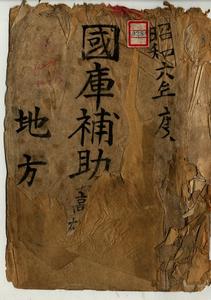 昭和六年度
國庫補助
地方